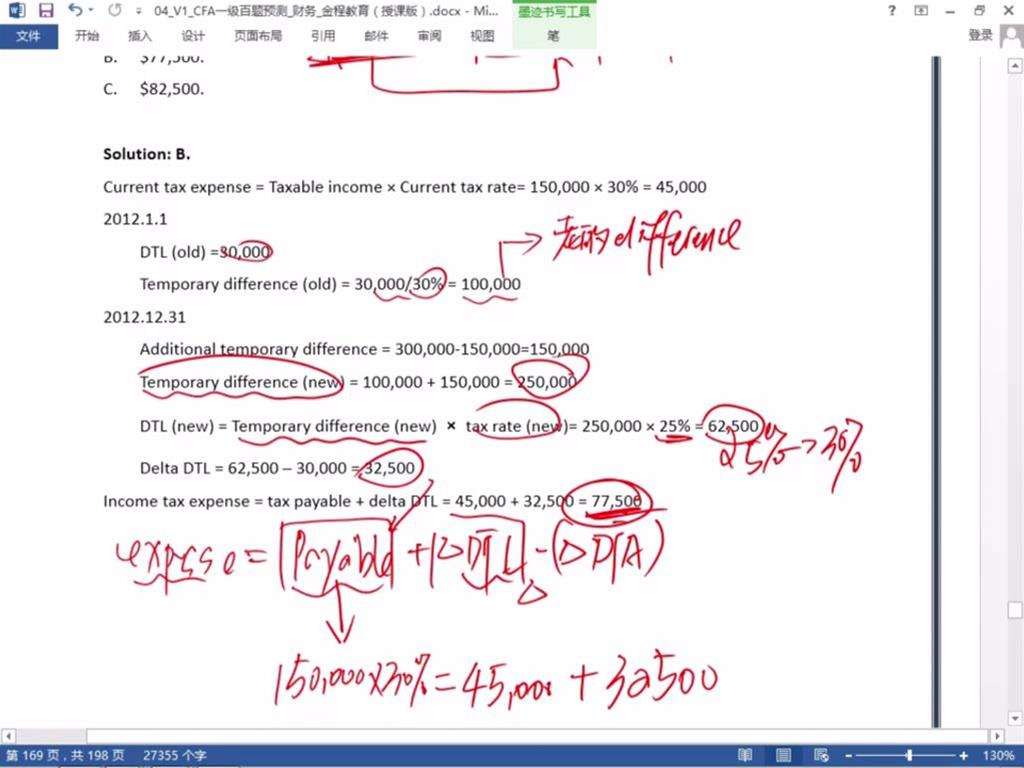 04_V1_CFA一级百题预测_财务_金程教育（授课版）.docx - Mi...
墨迹书写工具
文件 开始 插入 设计 页面布局 引用 邮件 审阅 视图 笔 登录
B. $77,500.
C. $82,500.
Solution: B.
Current tax expense = Taxable income × Current tax rate= 150,000 × 30% = 45,000
2012.1.1
老的difference
DTL (old) =30,000
Temporary difference (old) = 30,000/30% = 100,000
2012.12.31
Additional temporary difference = 300,000-150,000=150,000
Temporary difference (new) = 100,000 + 150,000 = 250,000
DTL (new) = Temporary difference (new) × tax rate (new)= 250,000 × 25% = 62,500
25%->30%
Delta DTL = 62,500 – 30,000 = 32,500
Income tax expense = tax payable + delta DTL = 45,000 + 32,500 = 77,500
expense = Payable + ΔDTL - (ΔDTA)
150,000×30% = 45,000 + 32500
第 169 页，共 198 页 27355 个字 130%